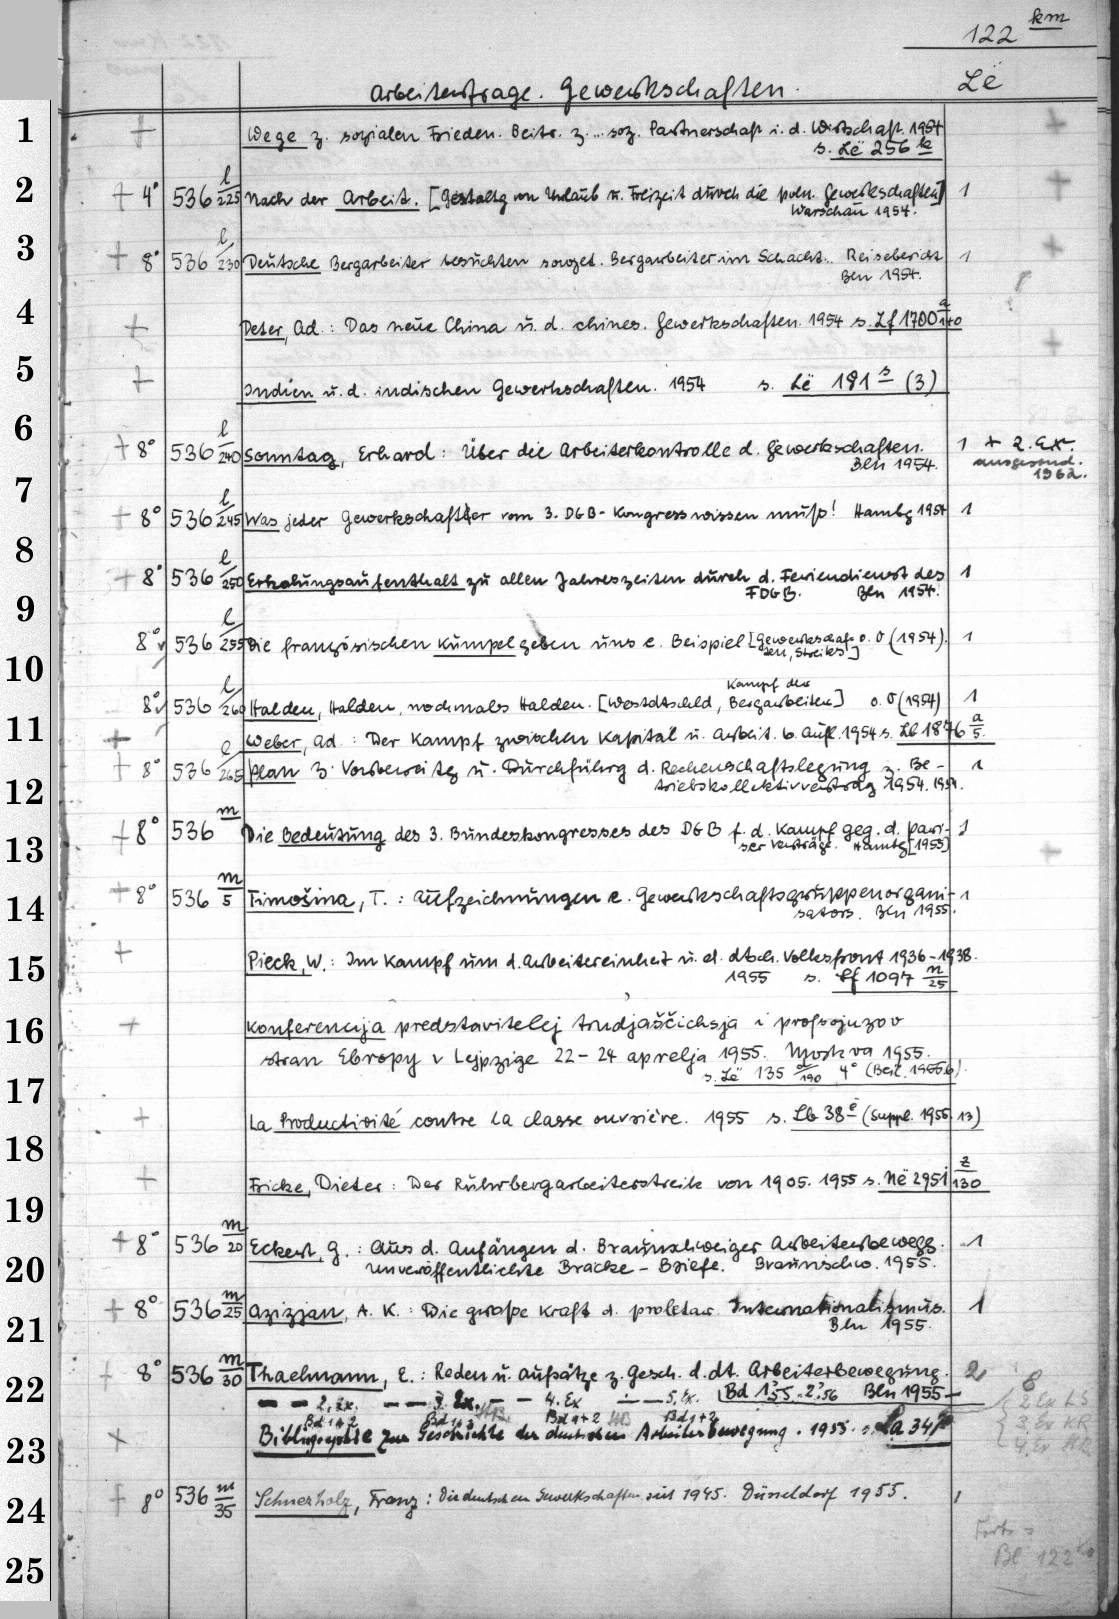 122 km
Arbeiterfrage. Gewerkschaften. Lë
1
+ Wege z. sozialen Frieden. Beitr. z. ... soz. Partnerschaft i. d. Wirtschaft. 1954 +
s. Lë 256 k
2
+ 4° 536 l/225 Nach der Arbeit. [Gestaltg von Urlaub u. Freizeit durch die poln. Gewerkschaften] 1 +
Warschau 1954.
3
+ 8° 536 l/230 Deutsche Bergarbeiter besuchten sowjet. Bergarbeiter im Schacht. Reisebericht 1 +
Bln 1954.
4
+ Deter, Ad.: Das neue China u. d. chines. Gewerkschaften. 1954 s. Lf 1700 a/140
+
5
+ Indien u. d. indischen Gewerkschaften. 1954 s. Lë 181 s (3)
6
+ 8° 536 l/240 Sonntag, Erhard: Über die Arbeiterkontrolle d. Gewerkschaften. 1 + 2. Ex.
Bln 1954. ausgesond.
1962.
7
+ 8° 536 l/245 Was jeder Gewerkschafter vom 3. DGB-Kongress wissen muß! Hambg 1954 1
8
+ 8° 536 l/250 Erholungsaufenthalt zu allen Jahreszeiten durch d. Feriendienst des 1
FDGB. Bln 1954.
9
8° 536 l/255 Die französischen Kumpel geben uns e. Beispiel [Gewerkschaf- o. O (1954). 1
ten, Streiks]
10
Kampf der
8° 536 l/260 Halden, Halden, nochmals Halden. [Westdtschld, Bergarbeiter] o. O (1954) 1
11
+ Weber, Ad.: Der Kampf zwischen Kapital u. Arbeit. 6. Aufl. 1954 s. Lb 1876 a/5.
+ 8° 536 l/265 Plan z. Vorbereitg u. Durchführg d. Rechenschaftslegung z. Be- 1
12
triebskollektivvertrag 1954. 1954.
+ 8° 536 m Die Bedeutung des 3. Bundeskongresses des DGB f. d. Kampf geg. d. Pari- 1
13
ser Verträge. Hambg [1955] +
+ 8° 536 m/5 Timošina, T.: Aufzeichnungen e. Gewerkschaftsgruppenorgani- 1
14
sators. Bln 1955.
+ Pieck, W.: Im Kampf um d. Arbeitereinheit u. d. dtsch. Volksfront 1936-1938.
15
1955 s. Lf 1097 n/25
16
+ Konferencija predstavitelej trudjaščichsja i profsojuzov
stran Evropy v Lejpzige 22-24 aprelja 1955. Moskva 1955.
s. Lë 135 4° (Beil. 1955.6).
17
+ La Productivité contre la classe ouvrière. 1955 s. Lb 38 (Suppl. 1955. 13)
18
+ Fricke, Dieter: Der Ruhrbergarbeiterstreik von 1905. 1955 s. Në 2951 z/130
19
+ 8° 536 m/20 Eckert, G.: Aus d. Anfängen d. Braunschweiger Arbeiterbewegg. 1
20
Unveröffentlichte Bracke-Briefe. Braunschw. 1955.
+ 8° 536 m/25 Azizjan, A. K.: Die große Kraft d. proletar. Internationalismus. 1
21
Bln 1955.
+ 8° 536 m/30 Thaelmann, E.: Reden u. Aufsätze z. Gesch. d. dt. Arbeiterbewegung. 2
22
— — 2. Ex. — — 3. Ex. — — 4. Ex — — 5. Ex. Bd 1.'55. 2.'56 Bln 1955- 2 Ex LS
Bd 1+2 Bd 1+2 Bd 1+2 Bd 1+2 3. Ex KR
+ Bibliographie zur Geschichte der deutschen Arbeiterbewegung. 1955. s. La 34 4. Ex
23
24
+ 8° 536 m/35 Schnerholz, Franz: Die deutschen Gewerkschaften seit 1945. Düsseldorf 1955. 1
Forts. s.
25
Bl 122